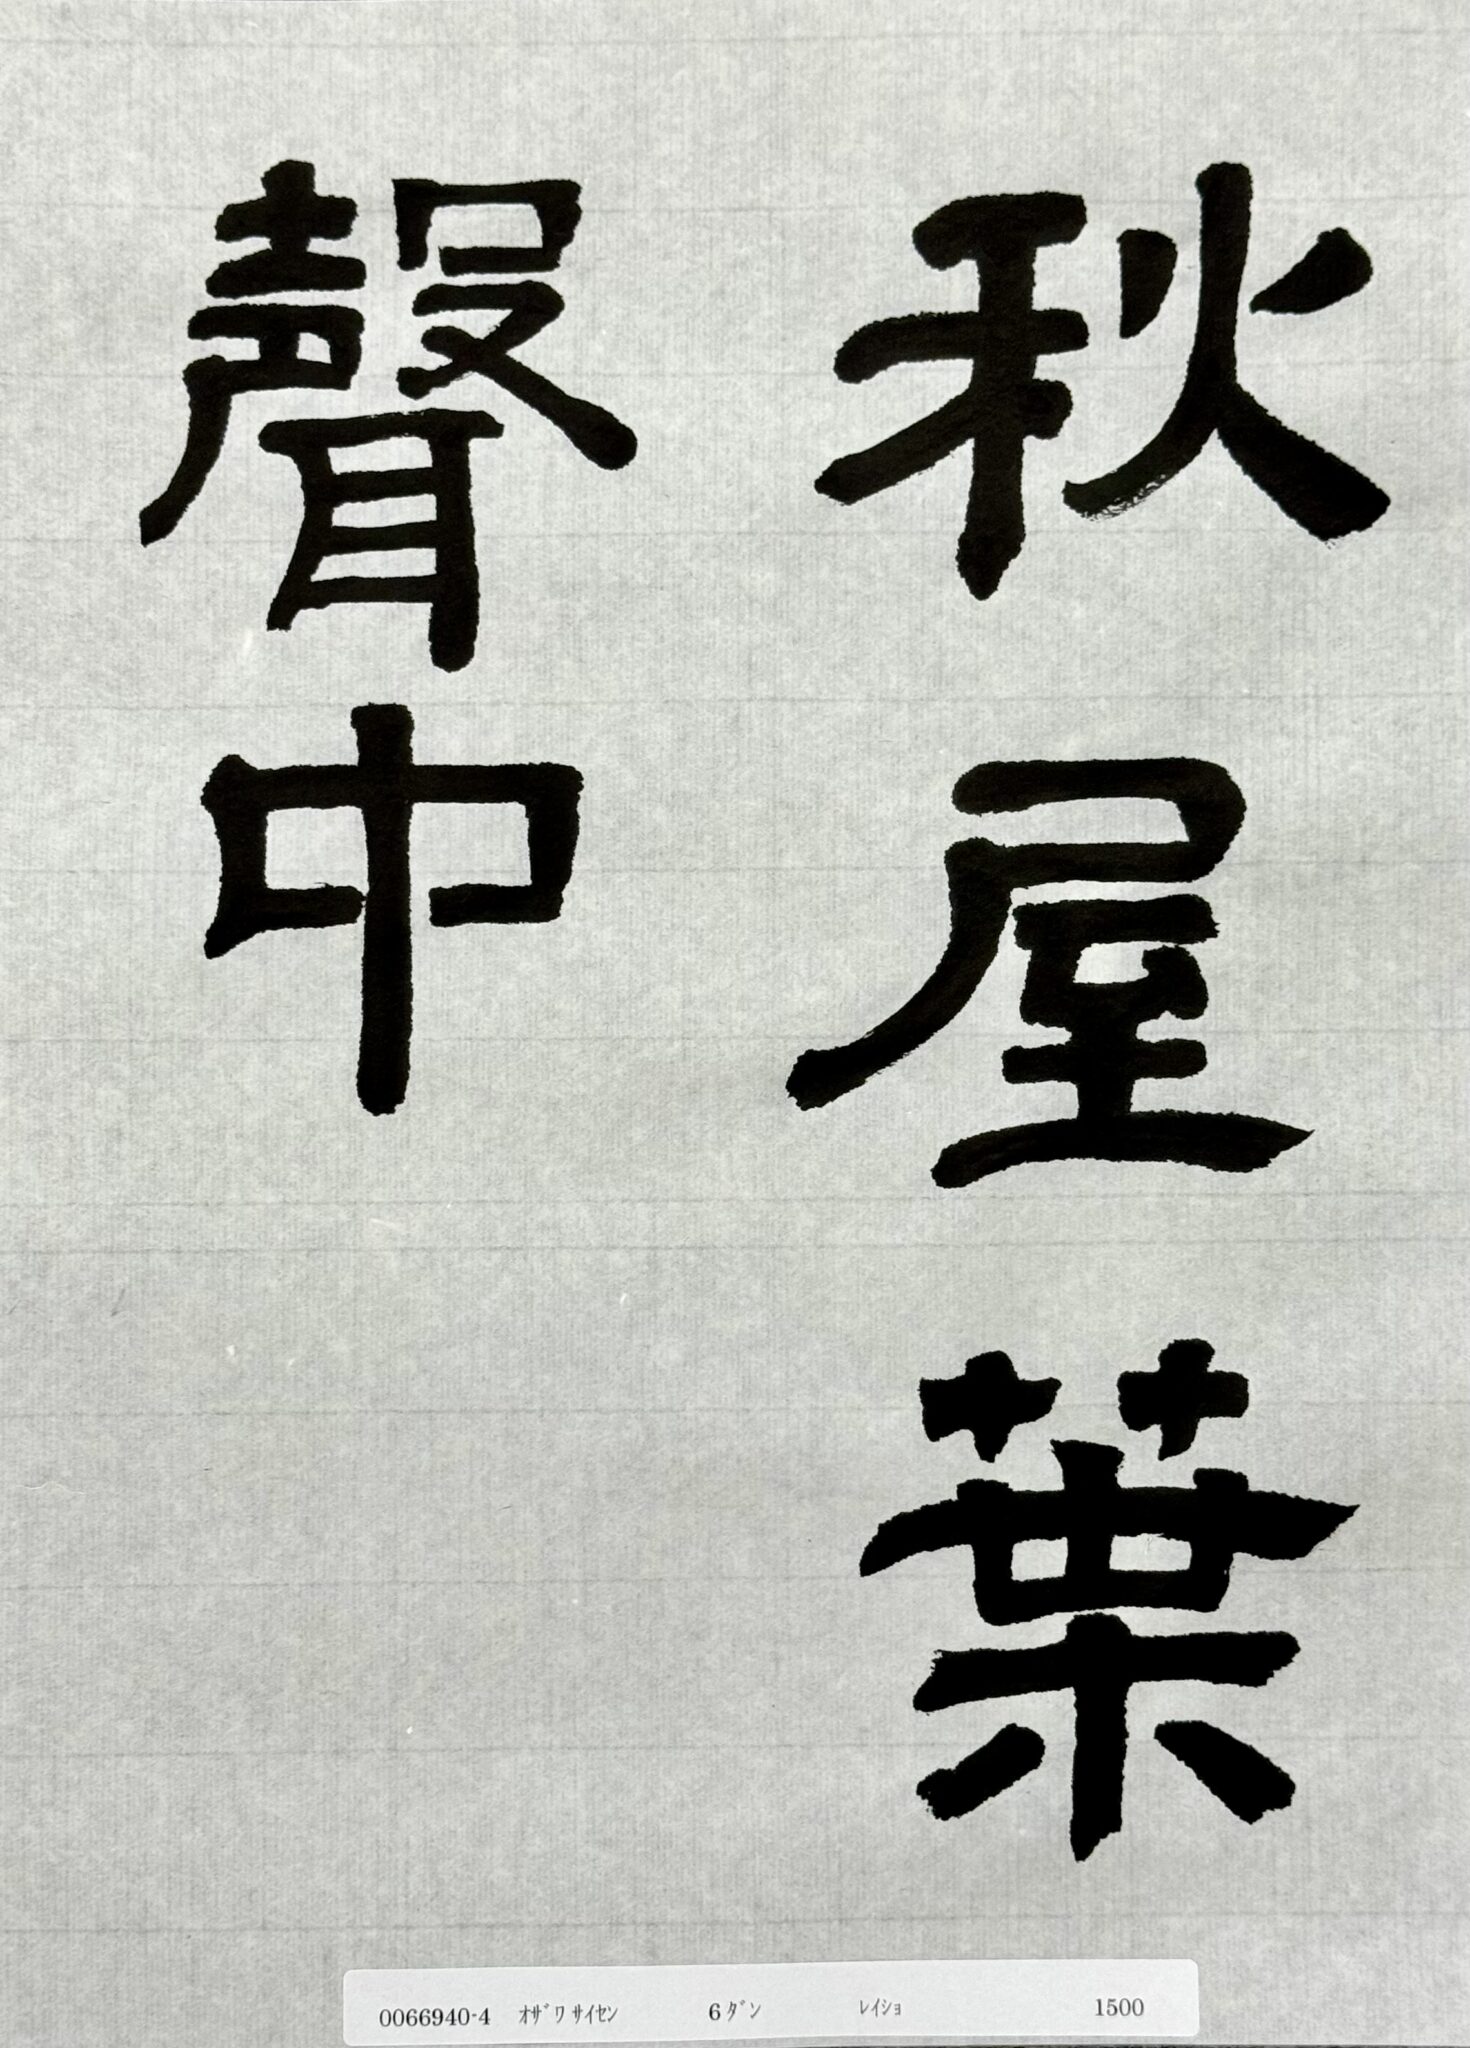 秋屋葉
聲中
0066940-4 ｵｻﾞﾜ ｻｲｾﾝ 6ﾀﾞﾝ ﾚｲｼｮ 1500